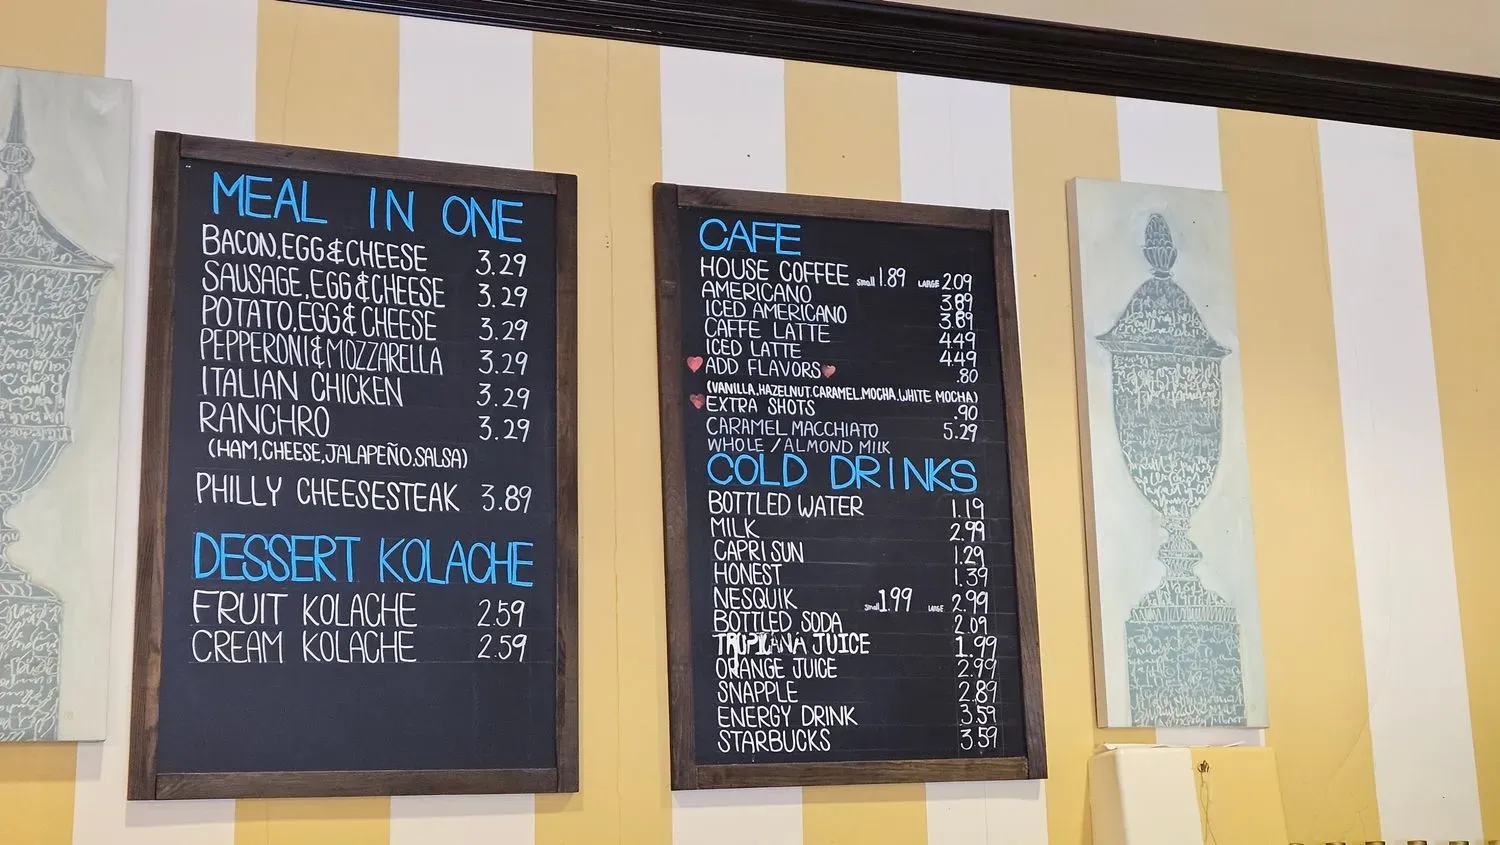 MEAL IN ONE
BACON, EGG & CHEESE 3.29
SAUSAGE, EGG & CHEESE 3.29
POTATO, EGG & CHEESE 3.29
PEPPERONI & MOZZARELLA 3.29
ITALIAN CHICKEN 3.29
RANCHRO 3.29
(HAM, CHEESE, JALAPEÑO, SALSA)
PHILLY CHEESESTEAK 3.89
DESSERT KOLACHE
FRUIT KOLACHE 2.59
CREAM KOLACHE 2.59
CAFE
HOUSE COFFEE small 1.89 LARGE 2.09
AMERICANO 3.89
ICED AMERICANO 3.89
CAFFE LATTE 4.49
ICED LATTE 4.49
ADD FLAVORS .80
(VANILLA, HAZELNUT, CARAMEL, MOCHA, WHITE MOCHA)
EXTRA SHOTS .90
CARAMEL MACCHIATO 5.29
WHOLE / ALMOND MILK
COLD DRINKS
BOTTLED WATER 1.19
MILK 2.99
CAPRI SUN 1.29
HONEST 1.39
NESQUIK small 1.99 LARGE 2.99
BOTTLED SODA 2.09
TROPICANA JUICE 1.99
ORANGE JUICE 2.99
SNAPPLE 2.89
ENERGY DRINK 3.59
STARBUCKS 3.59